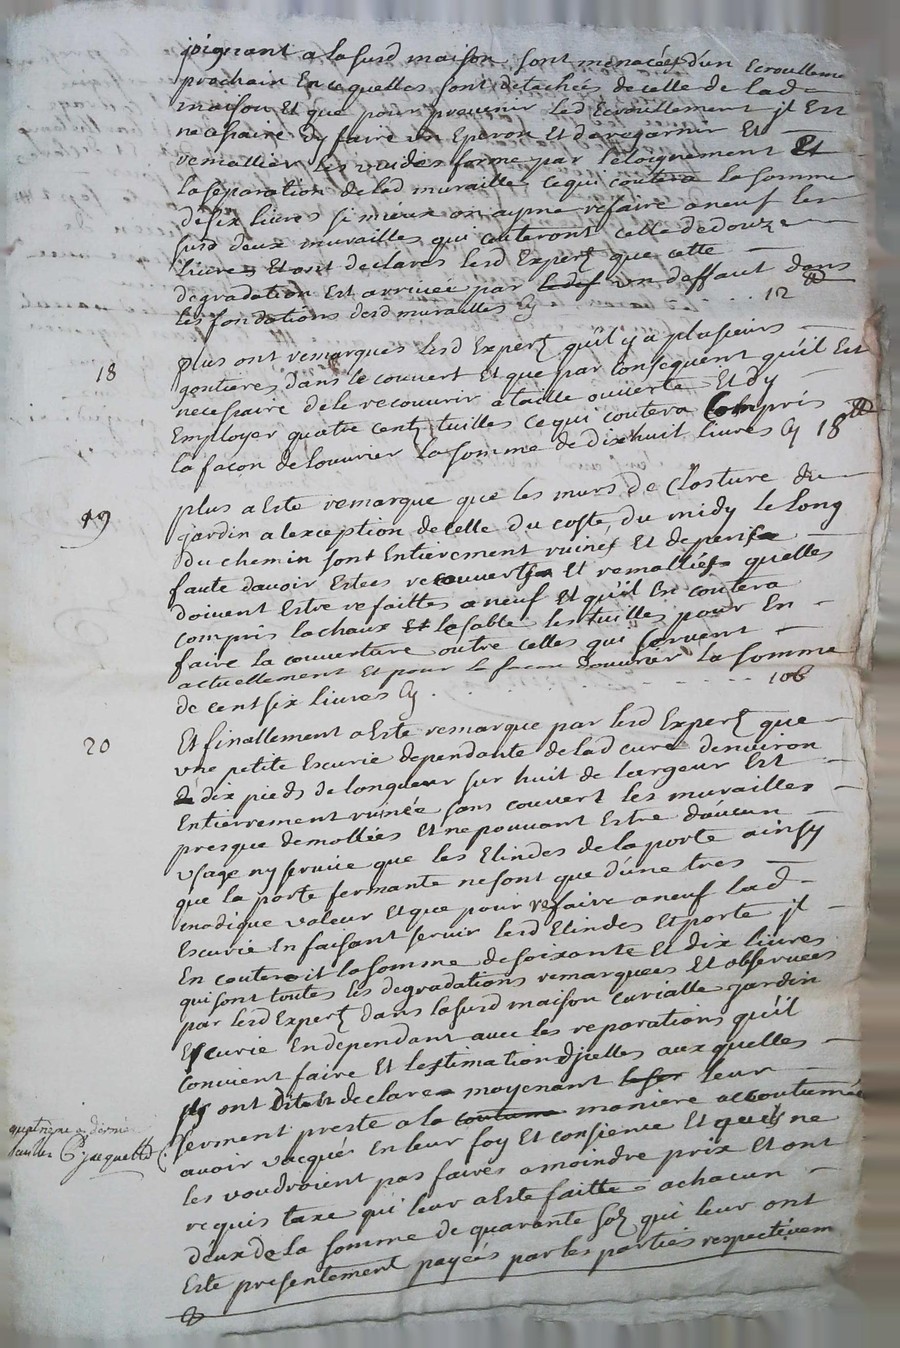 joignant a la susd maison sont menacées d'un Ecroulleme
prochain En ce quelles sont détachées de celle de lad
maison Et que pour prevenir led Ecroullement jl Est
necessaire dy faire un Eperon Et de regarnir Et
remallier les vuides formé par l'eloignement Et
la separation de lad muraille ce qui coutera la somme
de six livres si mieux on ayme refaire a neuf les
susd deux murailles qui couteront celle de douze
livres Et ont declares lesd Expers que cette
degradation Est arrivée par un deffaut dans
les fondations desd murailles Cy 12 ₶
18 plus ont remarques lesd Experts qu'il y a plusieurs
goutieres dans le couvert Et que par consequent qu'il Est
necessaire de le recouvrir a taille ouverte Et dy
Employer quatre cent tuilles ce qui coutera Compris
la façon de louvrier la somme de dixhuit livres Cy 18 ₶
19 plus a Este remarque que les murs de Closture du
jardin a lexception de celle du coste du midy le long
du chemin sont Entierement ruines Et deperis
faute davoir Estees recouvertes Et remalliés quelles
doivent Estre refaittes a neuf Et qu'il En coutera
compris la chaux Et le sable les tuilles pour En
faire la couverture outre celles qui servent
actuellement Et pour la facon d'ouvrier la somme
de cent six livres Cy 106
20 Et finallement a Este remarque par lesd Experts que
une petite Escurie dependante de lad cure denviron
dix pieds de longueur sur huit de largeur Est
Entierrement ruinée sans couvert les murailles
presque demollies Et ne pouvant Estre d'aucun
usage ny service que les Elindes de la porte ainsy
que la porte fermante ne sont que d'une tres
modique valeur Et que pour refaire a neuf lad
Escurie En faisant servir lesd Elindes Et porte jl
En couteroit la somme de soixante Et dix livres
qui sont toutes les degradations remarquees Et observees
par lesd Experts dans la susd maison curialle jardin
Escurie Endependant avec les reparations qu'il
convient faire Et lestimation djcelles aux quelles
jls ont dit Et declare moyenant leur
serment preste a la coutume maniere accoutumée
avoir vacqués En leur foy Et consience Et quils ne
les voudroient pas faires a moindre prix Et ont
requis taxe qui leur a Este faitte a chacun
d'eux de la somme de quarante sols qui leur ont
Este presentement payées par les parties respectivem